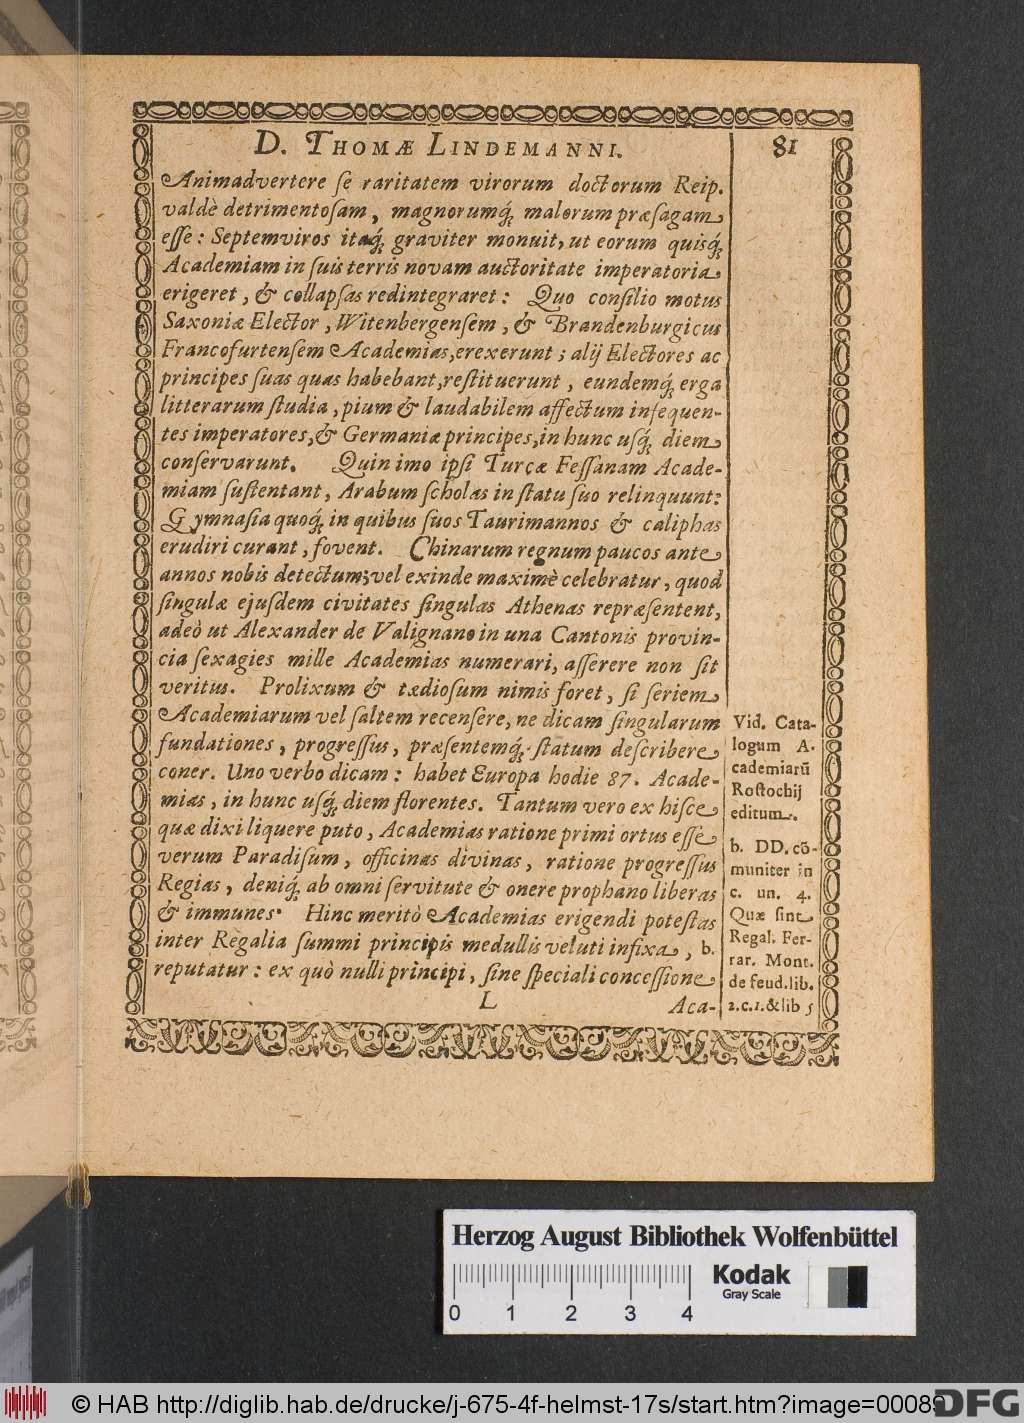 D. THOMÆ LINDEMANNI. 81
Animadvertere ſe raritatem virorum doctorum Reip.
valdè detrimentoſam, magnorumq́; malorum præſagam
eſſe: Septemviros itaq́; graviter monuit, ut eorum quisq́;
Academiam in ſuis terris novam auctoritate imperatoria
erigeret, & collapſas redintegraret: Quo conſilio motus
Saxoniæ Elector, Witenbergenſem, & Brandenburgicus
Francofurtenſem Academias, erexerunt; alij Electores ac
principes ſuas quas habebant, reſtituerunt, eundemq́; erga
litterarum ſtudia, pium & laudabilem affectum inſequen-
tes imperatores, & Germaniæ principes, in hunc uſq́; diem
conſervarunt. Quin imo ipſi Turcæ Feſſanam Acade-
miam ſuſtentant, Arabum ſcholas in ſtatu ſuo relinquunt:
Gymnaſia quoq́; in quibus ſuos Taurimannos & caliphas
erudiri curant, fovent. Chinarum regnum paucos ante
annos nobis detectum; vel exinde maximè celebratur, quod
ſingulæ ejuſdem civitates ſingulas Athenas repræſentent,
adeò ut Alexander de Valignano in una Cantonis provin-
cia ſexagies mille Academias numerari, aſſerere non ſit
veritus. Prolixum & tædioſum nimis foret, ſi ſeriem
Academiarum vel ſaltem recenſere, ne dicam ſingularum
fundationes, progreſſus, præſentemq́; ſtatum deſcribere
coner. Uno verbo dicam: habet Europa hodie 87. Acade-
mias, in hunc uſq́; diem florentes. Tantum vero ex hiſce
quæ dixi liquere puto, Academias ratione primi ortus eſſe
verum Paradiſum, officinas divinas, ratione progreſſus
Regias, deniq́; ab omni ſervitute & onere prophano liberas
& immunes. Hinc meritò Academias erigendi poteſtas
inter Regalia ſummi principis medullis veluti infixa, b.
reputatur: ex quò nulli principi, ſine ſpeciali conceſſione
L Aca-
Vid. Cata-
logum A.
cademiarū
Roſtochij
editum.
b. DD. cō-
muniter in
c. un. 4.
Quæ ſint
Regal. Fer-
rar. Mont.
de feud. lib.
2. c. 1. & lib 5
Herzog August Bibliothek Wolfenbüttel
0 1 2 3 4
Kodak
Gray Scale
© HAB http://diglib.hab.de/drucke/j-675-4f-helmst-17s/start.htm?image=00089
DFG